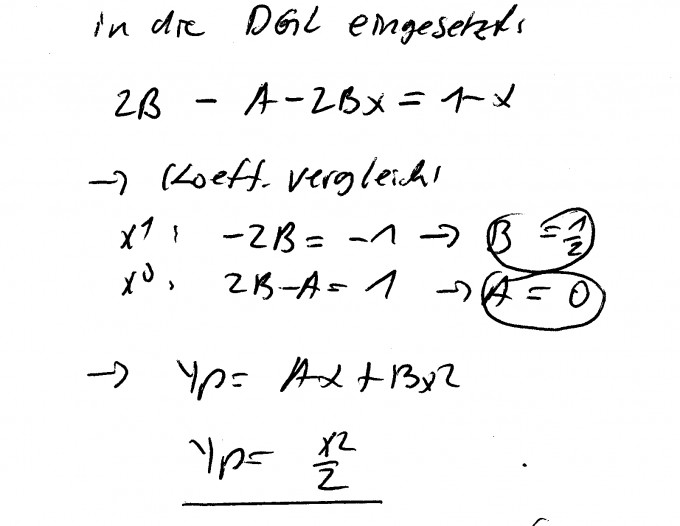 in die DGL eingesetzt:
2B - A - 2Bx = 1 - x
→ Koeff. vergleich:
x¹: -2B = -1 → B = 1/2
x⁰: 2B - A = 1 → A = 0
→ yp = Ax + Bx²
yp = x²/2